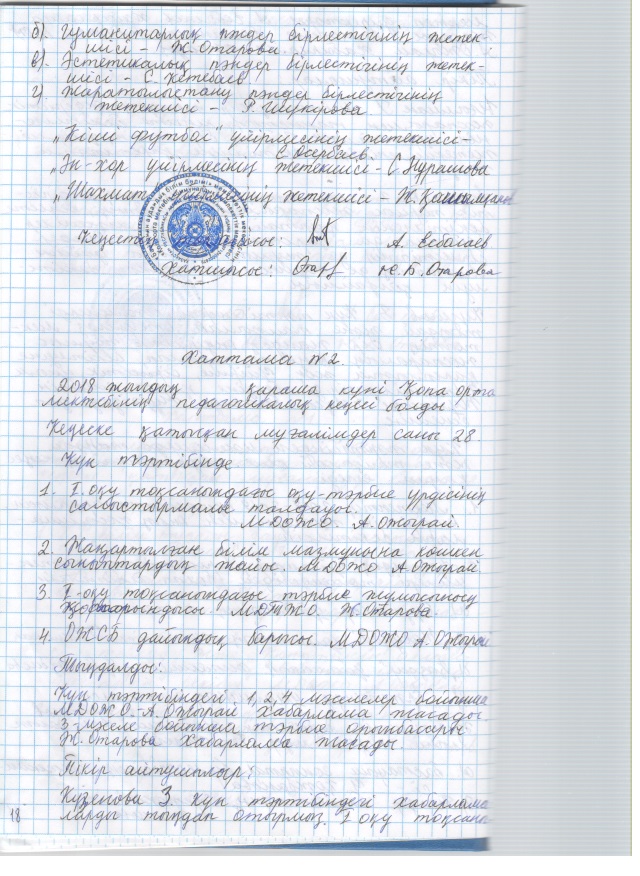 б). Гуманитарлық пәндер бірлестігінің жетек-
шісі – Ж. Отарова.
в). Эстетикалық пәндер бірлестігінің жетек-
шісі – С. Кетебаев
г). Жаратылыстану пәндер бірлестігінің
жетекшісі – Р. Шукірова.
„Кіші футбол" үйірмесінің жетекшісі –
С Өсербаев.
„Ән-хор үйірмесінің жетекшісі – С Нурашова
„Шахмат жетекшісі – Ж.
Кеңестің төрағасы: А. Есболаев
Хатшысы: Ж. Б. Отарова
Хаттама №2.
2018 жылдың қараша күні Қопа орта
мектебінің педагогикалық кеңесі болды
Кеңеске қатысқан мұғалімдер саны 28.
Күн тәртібінде
1. I оқу тоқсанындағы оқу-тәрбие үрдісінің
салыстырмалы талдауы.
МДОЖО. А.Ожырай.
2. Жаңартылған білім мазмұнына көшкен
сыныптардың жайы. МДОЖО А Ожырай
3. I-оқу тоқсанындағы тәрбие жұмысының
қорытындысы МДТЖО. Ж. Отарова.
4. ОЖСБ дайындық барысы. МДОЖО А. Ожырай
Тыңдалды:
Күн тәртібіндегі 1, 2, 4 мәселелер бойынша
МДОЖО. А. Ожырай хабарлама жасады
3-мәселе бойынша тәрбие орынбасары
Ж. Отарова хабарлама жасады.
Пікір айтушылар:
Кузенова З. Күн тәртібіндегі хабарлама
ларды тыңдап отырмыз. I оқу тоқсан
18